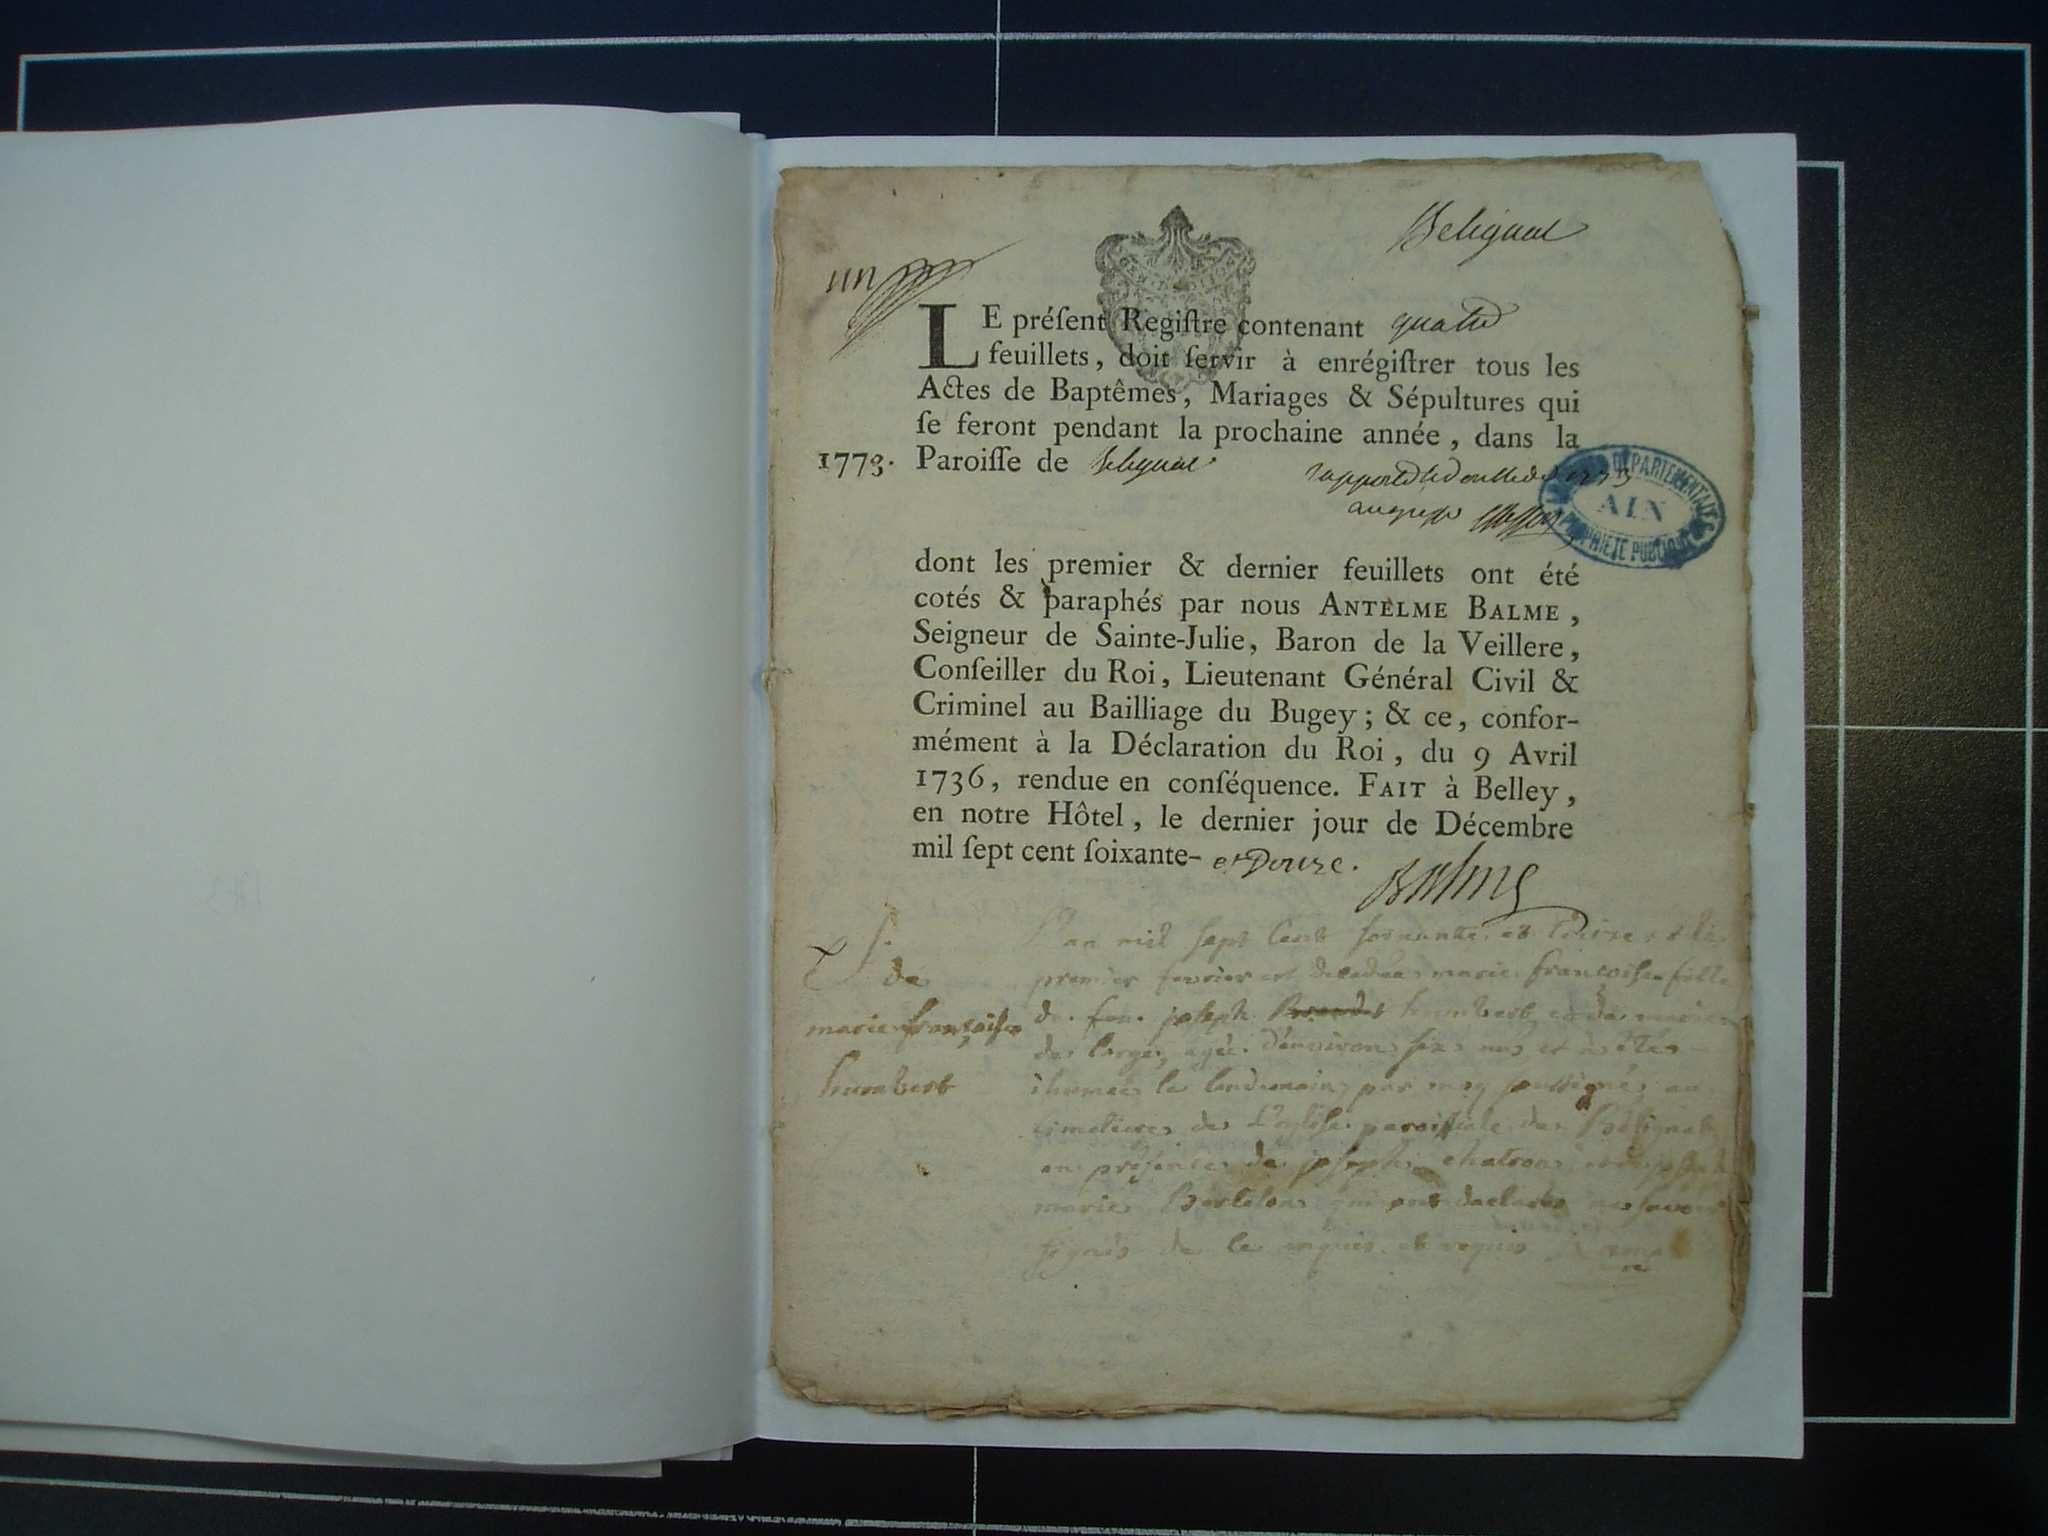 Belignat
un
LE préſent Regiſtre contenant quatre
feuillets, doit ſervir à enrégiſtrer tous les
Actes de Baptêmes, Mariages & Sépultures qui
ſe feront pendant la prochaine année, dans la
1773. Paroiſſe de Belignat
DÉPARTEMENTALES
AIN
PROPRIÉTÉ PUBLIQUE
dont les premier & dernier feuillets ont été
cotés & paraphés par nous ANTELME BALME,
Seigneur de Sainte-Julie, Baron de la Veillere,
Conſeiller du Roi, Lieutenant Général Civil &
Criminel au Bailliage du Bugey; & ce, confor-
mément à la Déclaration du Roi, du 9 Avril
1736, rendue en conſéquence. FAIT à Belley,
en notre Hôtel, le dernier jour de Décembre
mil ſept cent ſoixante- et Douze.
Balme
S.
de
marie françoise
humbert
L'an mil sept cent soixante et treize et le
premier fevrier est decedée marie françoise fille
de feu joseph humbert et de marie
de agée d'environ six ans et a étée
ihumée le landemain par moy soussigné au
cimetiere de L'eglise paroissiale de Bélignat
en présence de joseph chatron et de joseph
marie Bertelon qui ont declarés ne savoir
signés de ce enquis et requis